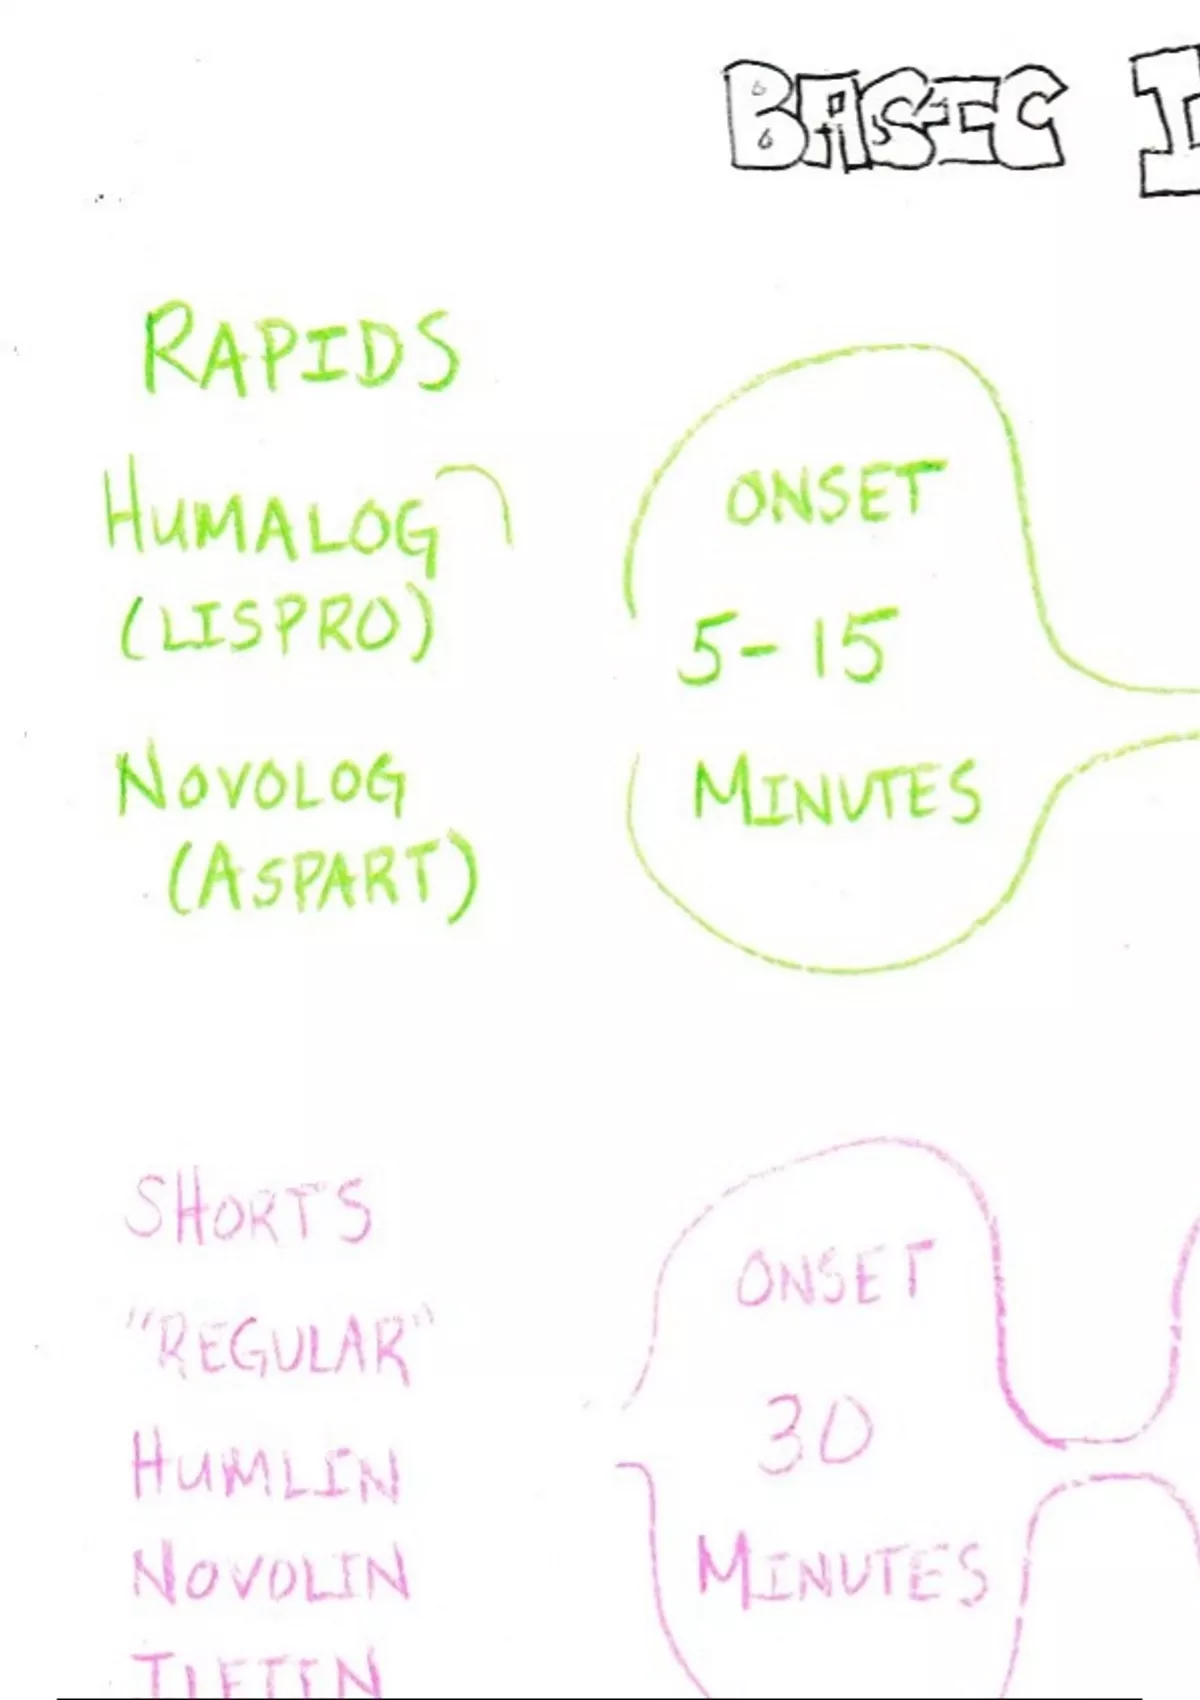 BASIC I
RAPIDS
HUMALOG
(LISPRO)
NOVOLOG
(ASPART)
ONSET
5-15
MINUTES
SHORTS
"REGULAR"
HUMLIN
NOVOLIN
ONSET
30
MINUTES